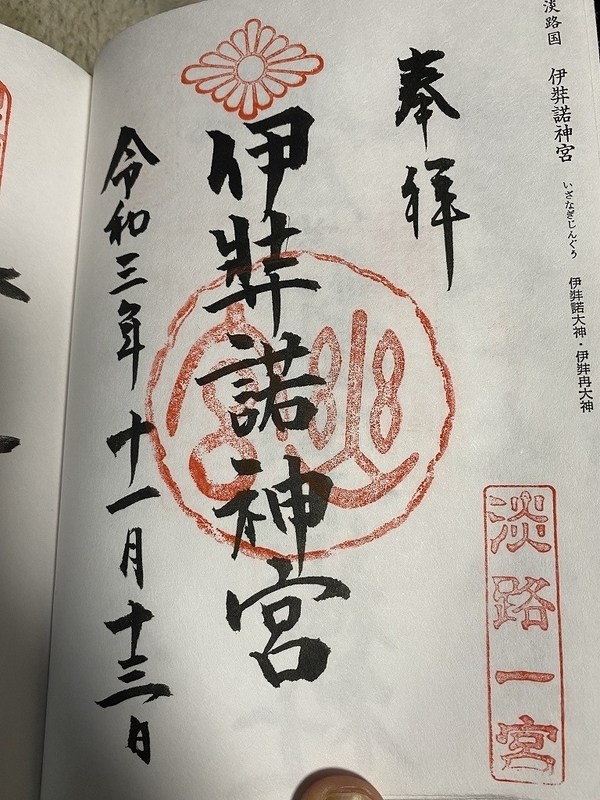 淡路国 伊弉諾神宮 いざなぎじんぐう 伊弉諾大神・伊弉冉大神
奉拝
淡路一宮
伊弉諾神宮
令和三年 十一月十三日